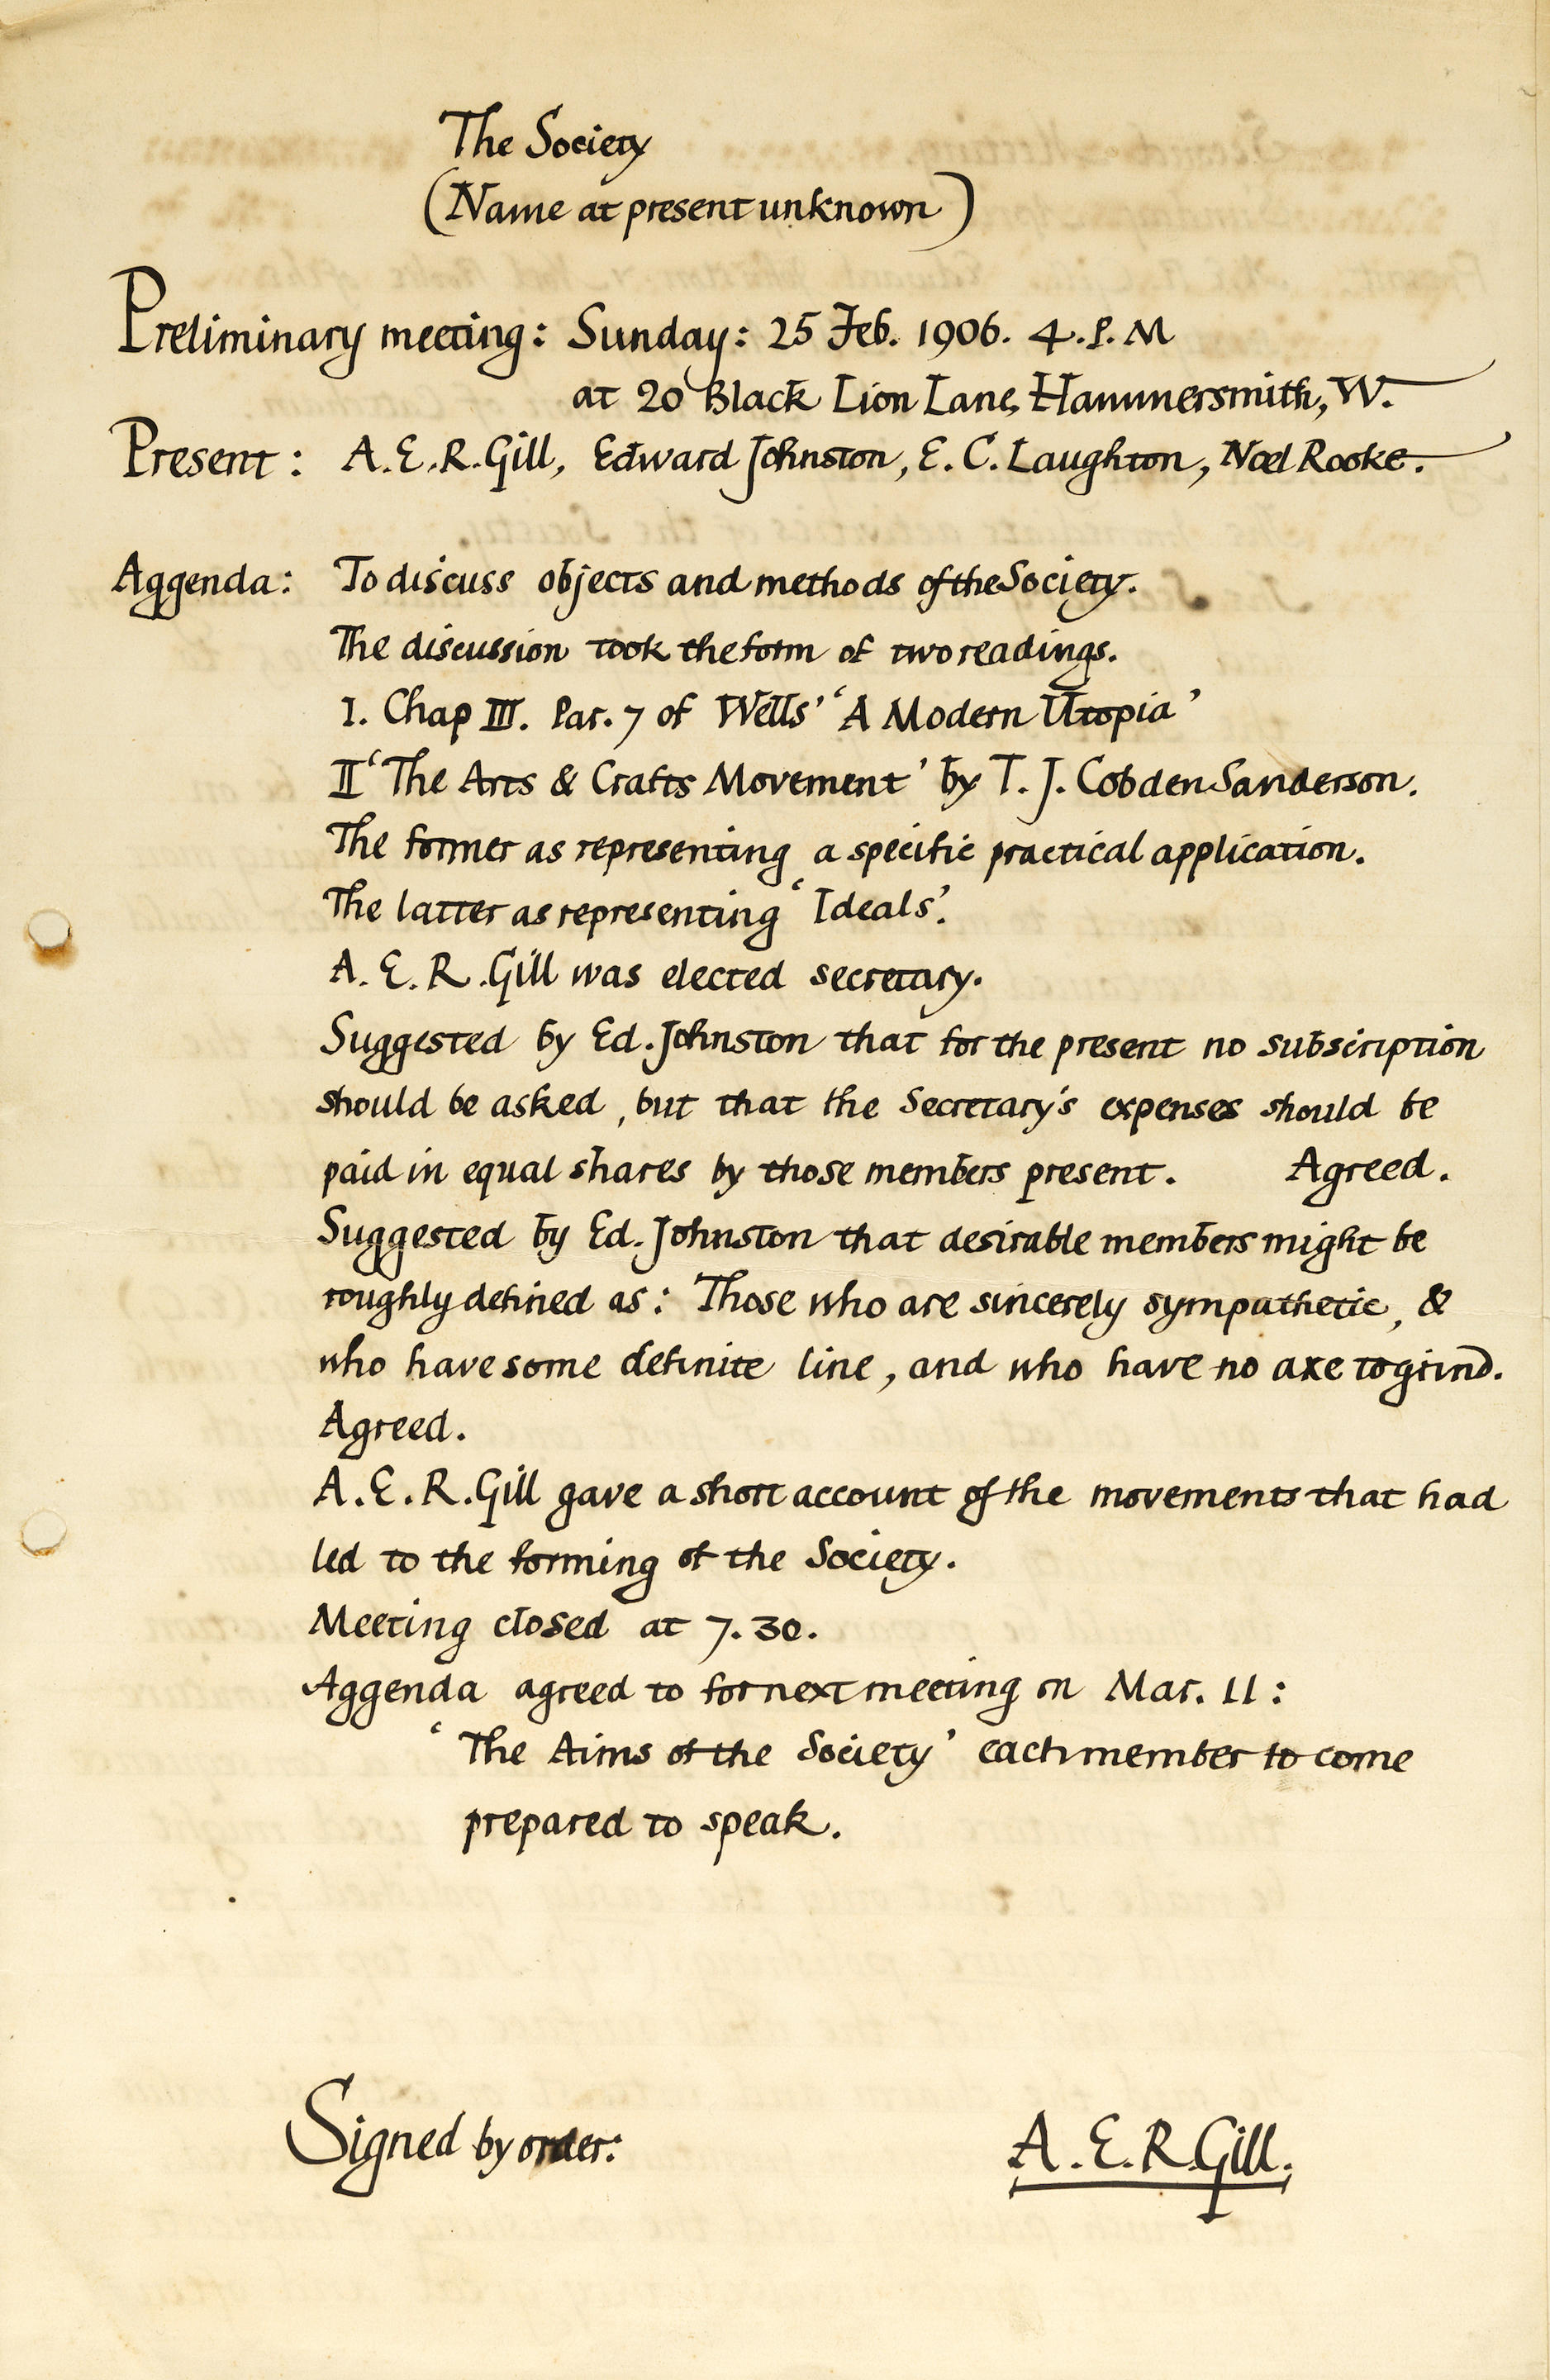 The Society
(Name at present unknown)
Preliminary meeting: Sunday: 25 Feb. 1906. 4.P.M
at 20 Black Lion Lane, Hammersmith, W.
Present: A.E.R.Gill, Edward Johnston, E.C.Laughton, Noel Rooke.
Aggenda: To discuss objects and methods of the Society.
The discussion took the form of two readings.
I. Chap III. Par. 7 of Wells' 'A Modern Utopia'
II 'The Arts & Crafts Movement' by T.J. Cobden Sanderson.
The former as representing a specific practical application.
The latter as representing 'Ideals'.
A.E.R.Gill was elected secretary.
Suggested by Ed. Johnston that for the present no subscription
should be asked, but that the Secretary's expenses should be
paid in equal shares by those members present. Agreed.
Suggested by Ed. Johnston that desirable members might be
roughly defined as: Those who are sincerely sympathetic, &
who have some definite line, and who have no axe to grind.
Agreed.
A.E.R.Gill gave a short account of the movements that had
led to the forming of the Society.
Meeting closed at 7.30.
Aggenda agreed to for next meeting on Mar. 11:
'The Aims of the Society' each member to come
prepared to speak.
Signed by order: A.E.R.Gill.